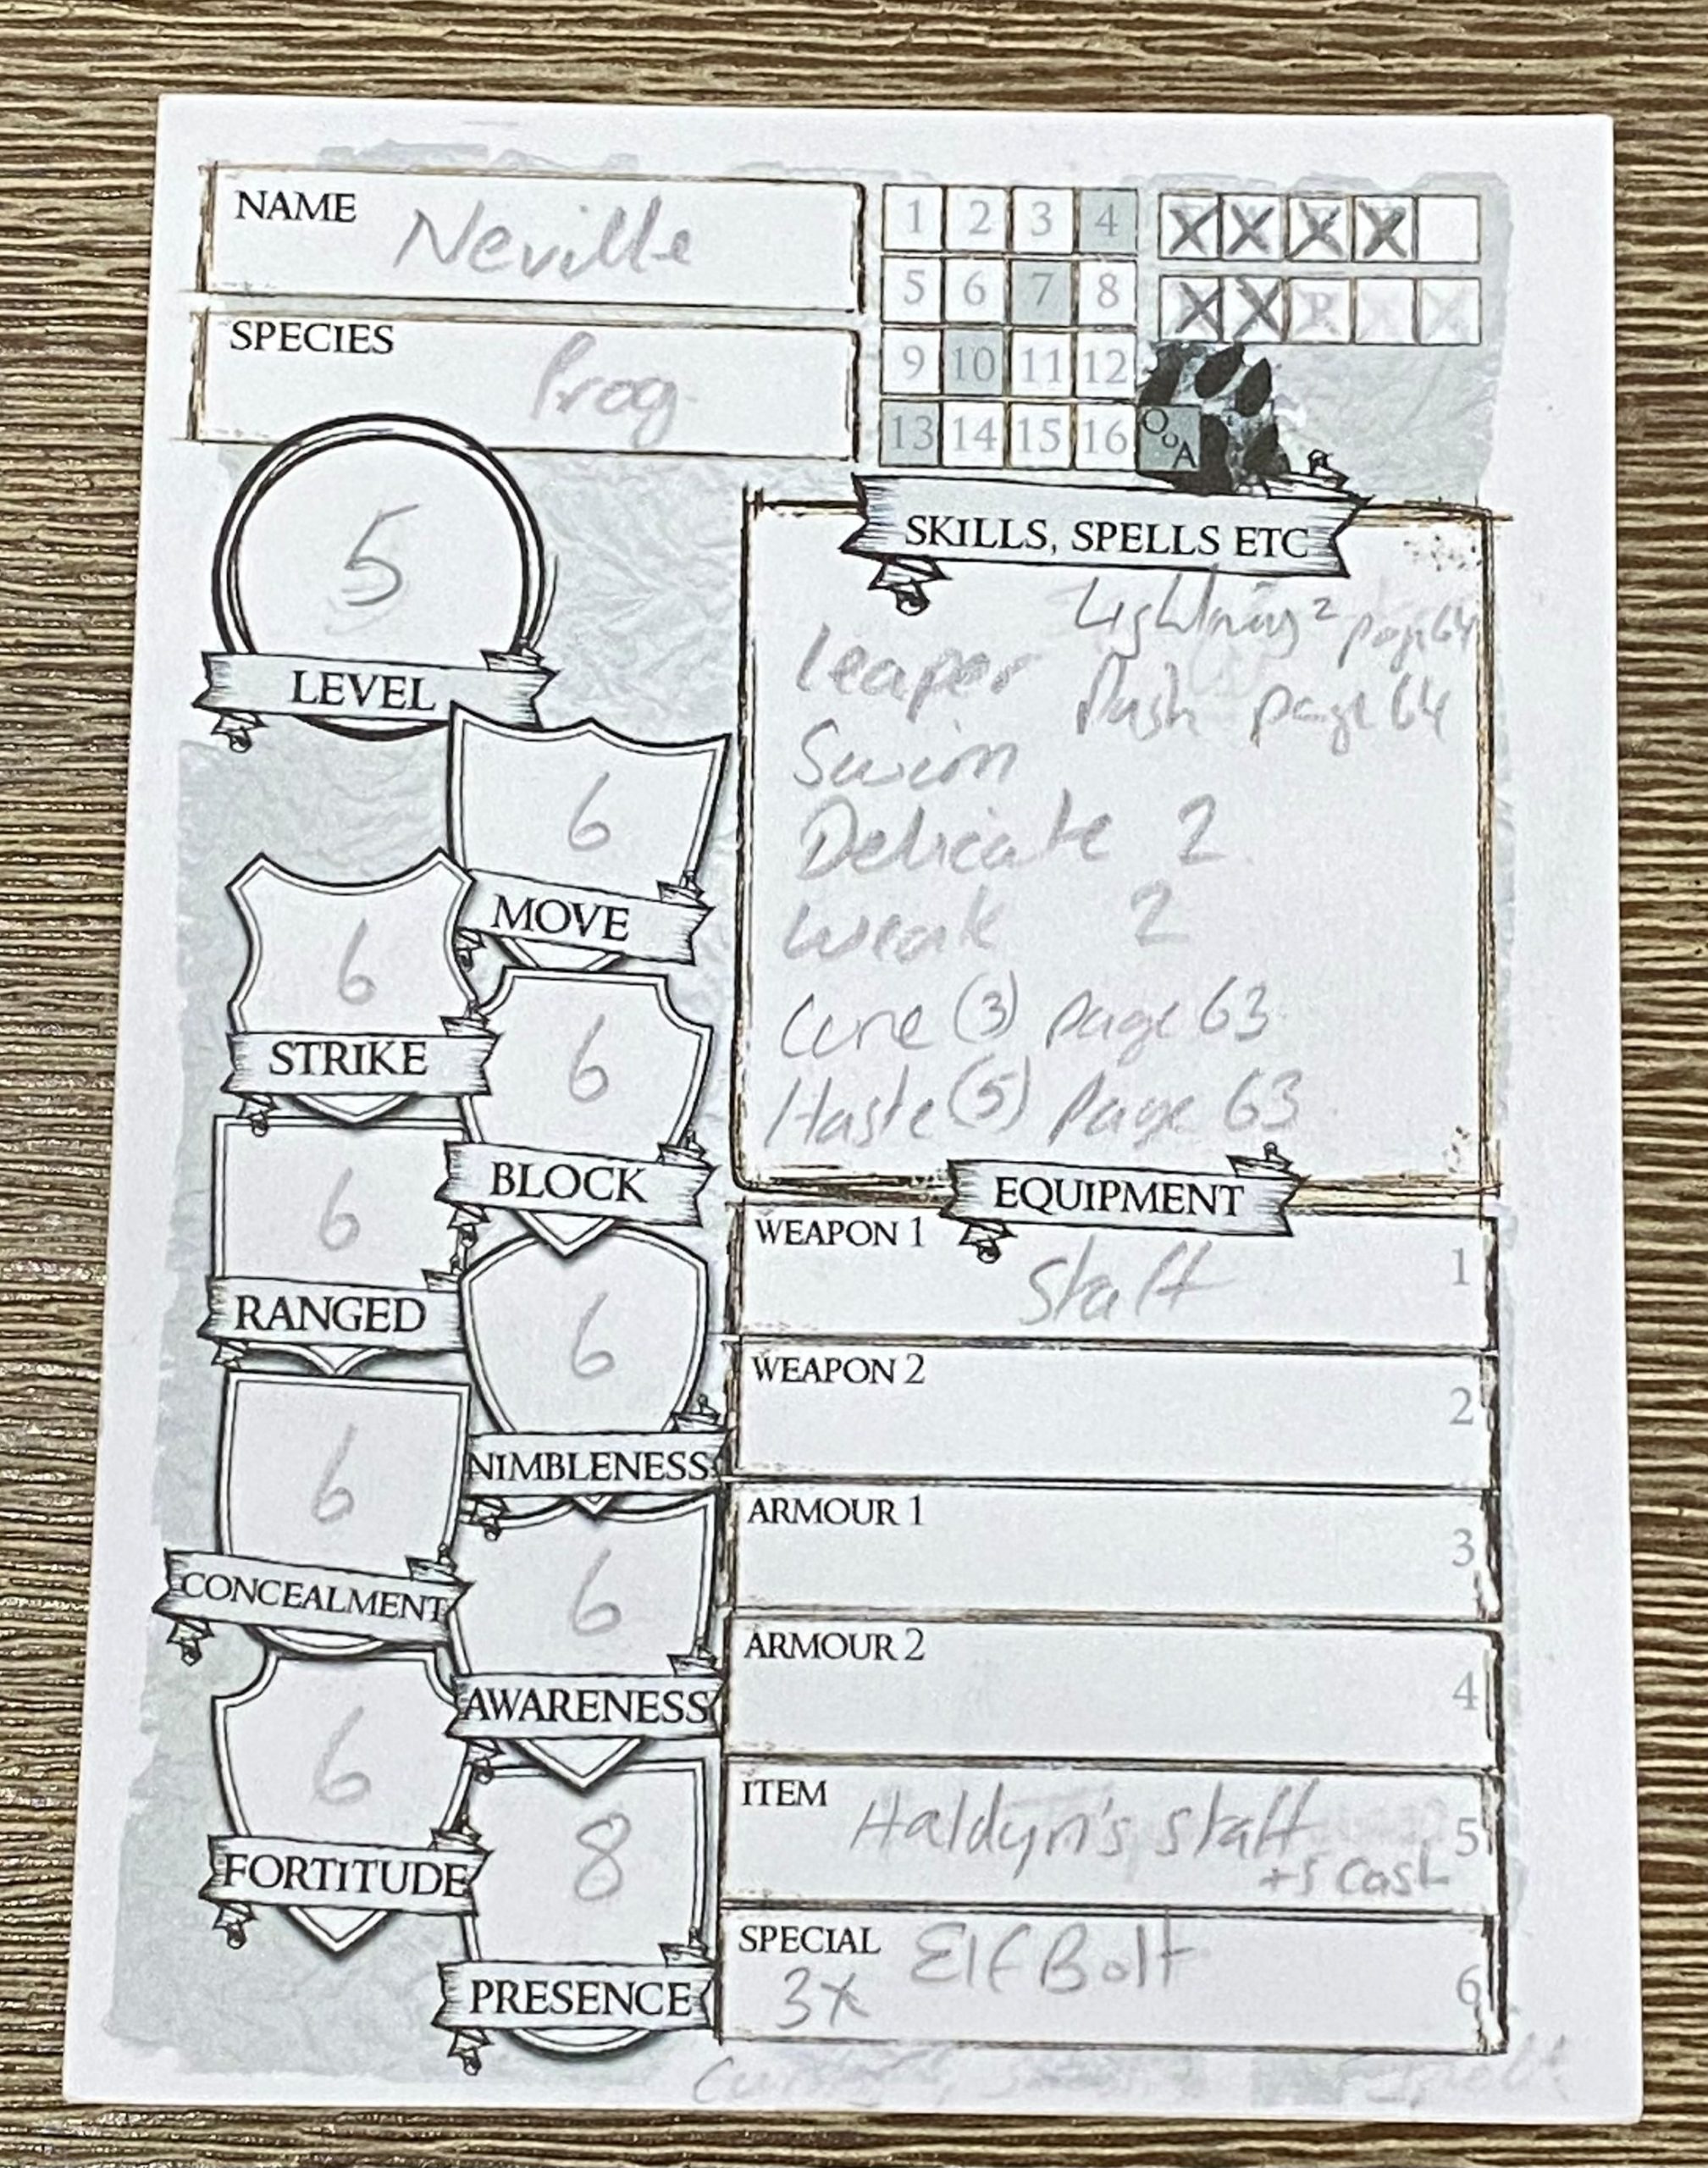 NAME Neville
SPECIES Frog
1 2 3 4 X X X X
5 6 7 8 X X
9 10 11 12
13 14 15 16 OofA
5
LEVEL
6
MOVE
6
STRIKE
6
BLOCK
6
RANGED
6
NIMBLENESS
6
CONCEALMENT
6
AWARENESS
6
FORTITUDE
8
PRESENCE
SKILLS, SPELLS ETC
Lightning 2 page 64
Leaper Dash page 64
Swim
Delicate 2
Weak 2
Cure (3) page 63
Haste (5) page 63
EQUIPMENT
WEAPON 1 Staff 1
WEAPON 2 2
ARMOUR 1 3
ARMOUR 2 4
ITEM Haldyn's staff 5
+5 Cast
SPECIAL Elf Bolt
3x 6